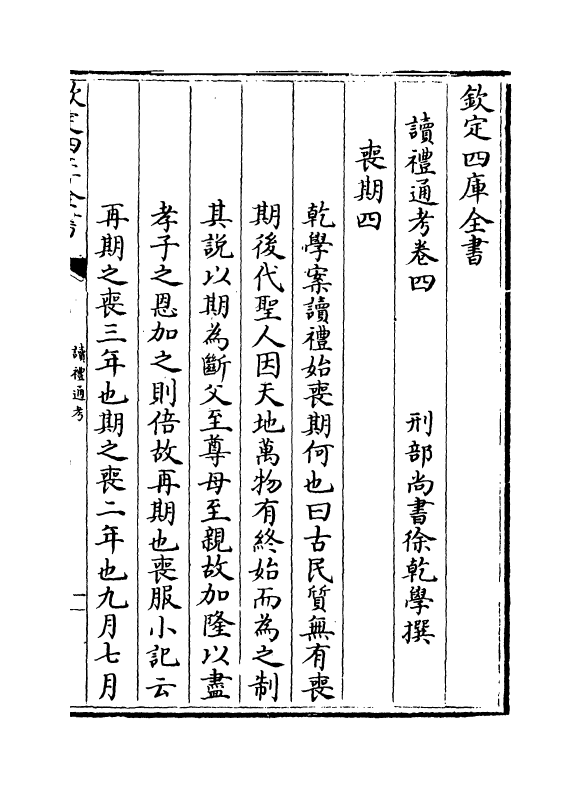 欽定四庫全書
讀禮通考卷四　刑部尚書徐乾學撰
喪期四
乾學案讀禮始喪期何也曰古民質無有喪
期後代聖人因天地萬物有終始而為之制
其說以期為斷父至尊母至親故加隆以盡
孝子之恩加之則倍故再期也喪服小記云
再期之喪三年也期之喪二年也九月七月
欽定四庫全書
讀禮通考
一